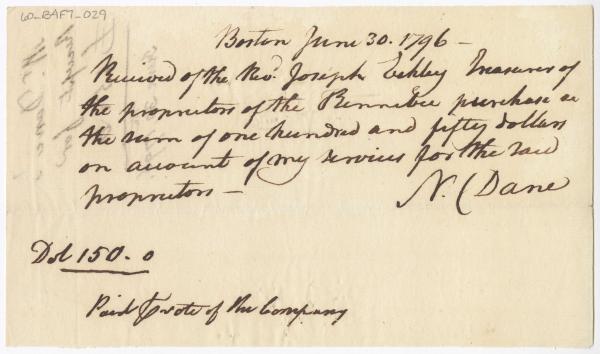 60_BAF7_029
Boston June 30. 1796 -
Received of the Revd. Joseph Eckley Treasurer of
the proprietors of the Kennebec purchase &c
the sum of one hundred and fifty dollars
on account of my services for the said
proprietors -
N. Dane
Dol 150. 0
Paid vote of the Company